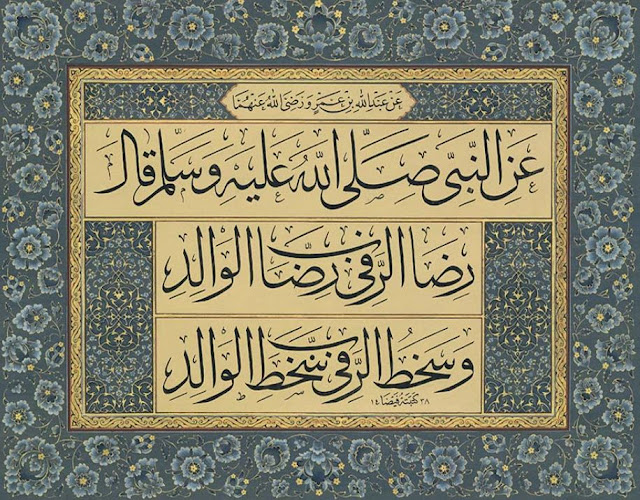 عَنْ عَبْدِ اللهِ بْنِ عَمْرٍو رَضِيَ اللهُ عَنْهُمَا
عَنِ النَّبِيِّ صَلَّى اللهُ عَلَيْهِ وَسَلَّمَ قَالَ
رِضَا الرَّبِّ فِي رِضَا الْوَالِدِ
وَسَخَطُ الرَّبِّ فِي سَخَطِ الْوَالِدِ
كتبه ١٤٣٨